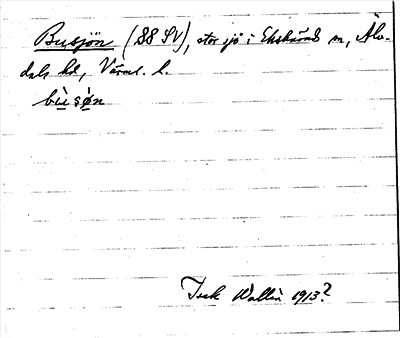 Busjön (88 SV), stor sjö i Ekshärads sn, Älv-
dals hd, Värml. l.
bùsø̀n
Wallin 1913?